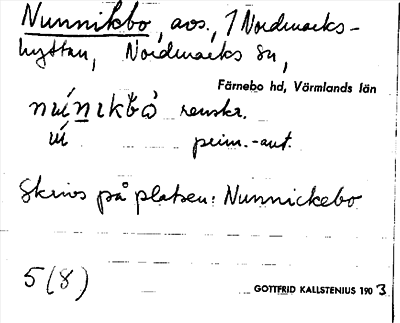 Nunnikbo, avs., 1 Nordmarks-
hyttan, Nordmarks sn,
Färnebo hd, Värmlands län
renskr.
prim.-ant.
Skrives på platsen: Nunnickebo
5(8)
GOTTFRID KALLSTENIUS 1903